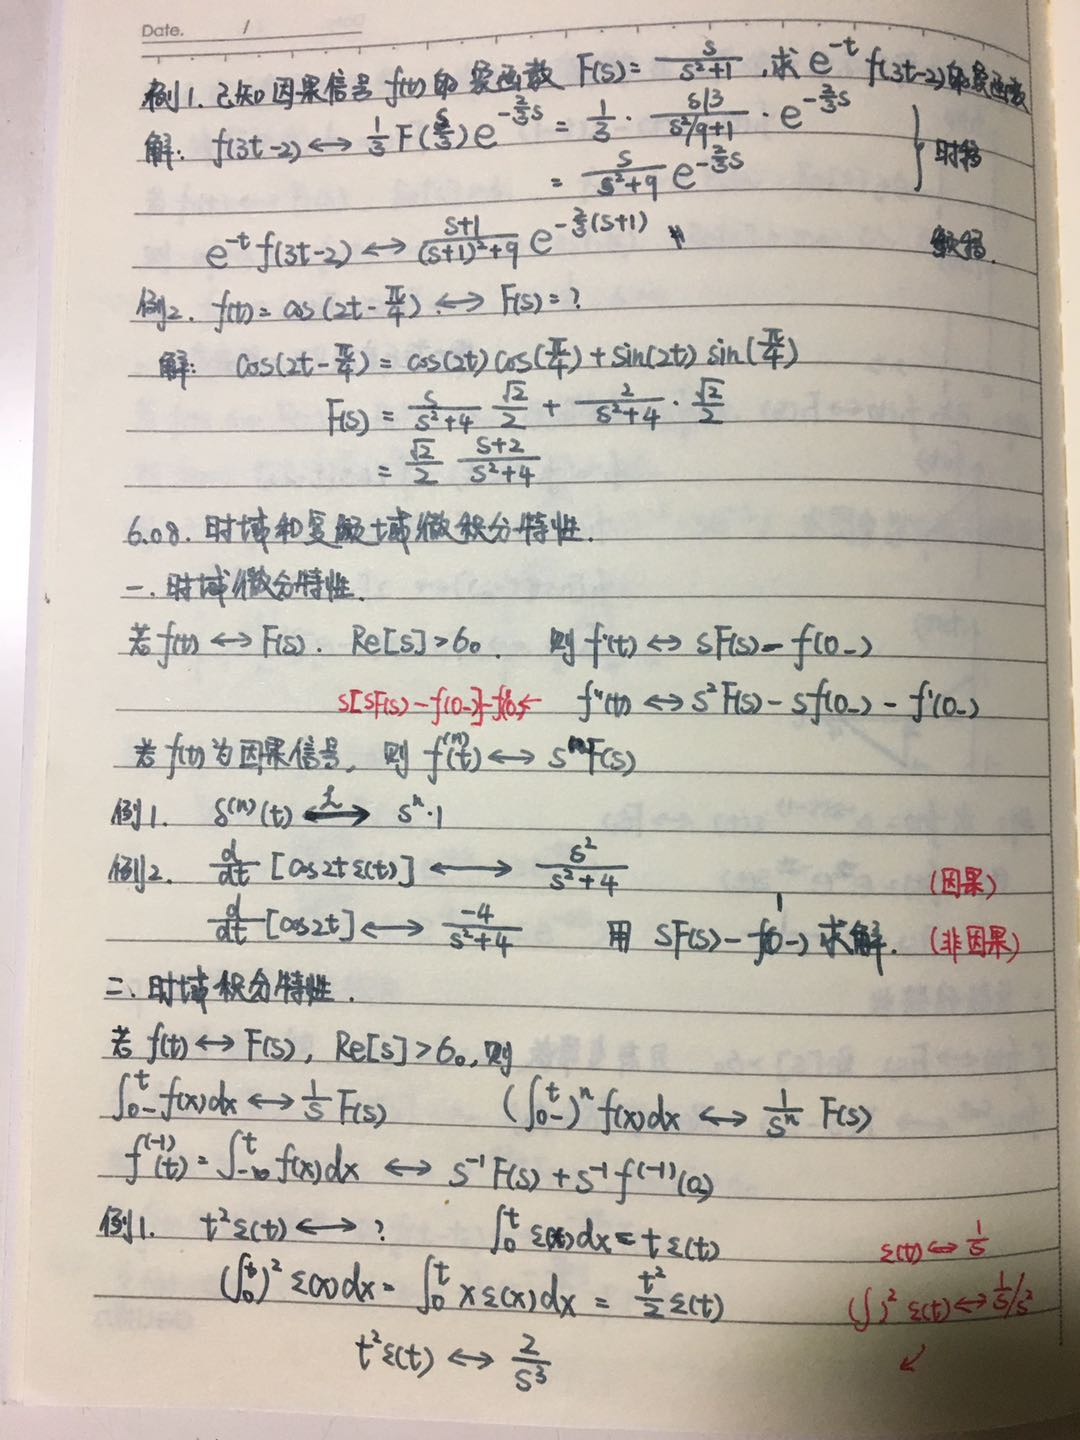 Date. /
例1. 已知因果信号 f(t) 的象函数 F(s) = s/(s²+1), 求 e^{-t} f(3t-2) 的象函数
解: f(3t-2) ↔ 1/3 F(s/3) e^{-2/3 s} = 1/3 · (s/3)/(s²/9+1) · e^{-2/3 s} } 时移
= s/(s²+9) e^{-2/3 s}
e^{-t} f(3t-2) ↔ (s+1)/((s+1)²+9) e^{-2/3 (s+1)} 频移.
例2. f(t) = cos(2t-π/4) ↔ F(s) = ?
解: cos(2t-π/4) = cos(2t)cos(π/4) + sin(2t) sin(π/4)
F(s) = s/(s²+4) √2/2 + 2/(s²+4) · √2/2
= √2/2 (s+2)/(s²+4)
6.08. 时域和复频域微积分特性.
一. 时域微分特性.
若 f(t) ↔ F(s). Re[s] > σ₀. 则 f'(t) ↔ sF(s) - f(0-)
s[sF(s) - f(0-)] - f'(0-) ← f''(t) ↔ s²F(s) - sf(0-) - f'(0-)
若 f(t) 为因果信号, 则 f^{(n)}(t) ↔ s^n F(s)
例1. δ^{(n)}(t) ↔ℒ s^n · 1
例2. d/dt [cos2t ε(t)] ↔ s²/(s²+4) (因果)
d/dt [cos2t] ↔ -4/(s²+4) 用 sF(s) - f(0-) 求解. (非因果)
1
二. 时域积分特性.
若 f(t) ↔ F(s), Re[s] > σ₀, 则
∫_{0-}^{t} f(x)dx ↔ 1/s F(s) (∫_{0-}^{t})^n f(x)dx ↔ 1/s^n F(s)
f^{(-1)}(t) = ∫_{-∞}^{t} f(x)dx ↔ s^{-1} F(s) + s^{-1} f^{(-1)}(0-)
例1. t²ε(t) ↔ ? ∫_0^t ε(x)dx = tε(t) ε(t) ↔ 1/s
(∫_0^t)² ε(x)dx = ∫_0^t xε(x)dx = t²/2 ε(t) (∫)² ε(t) ↔ 1/s/s²
t²ε(t) ↔ 2/s³ ↙